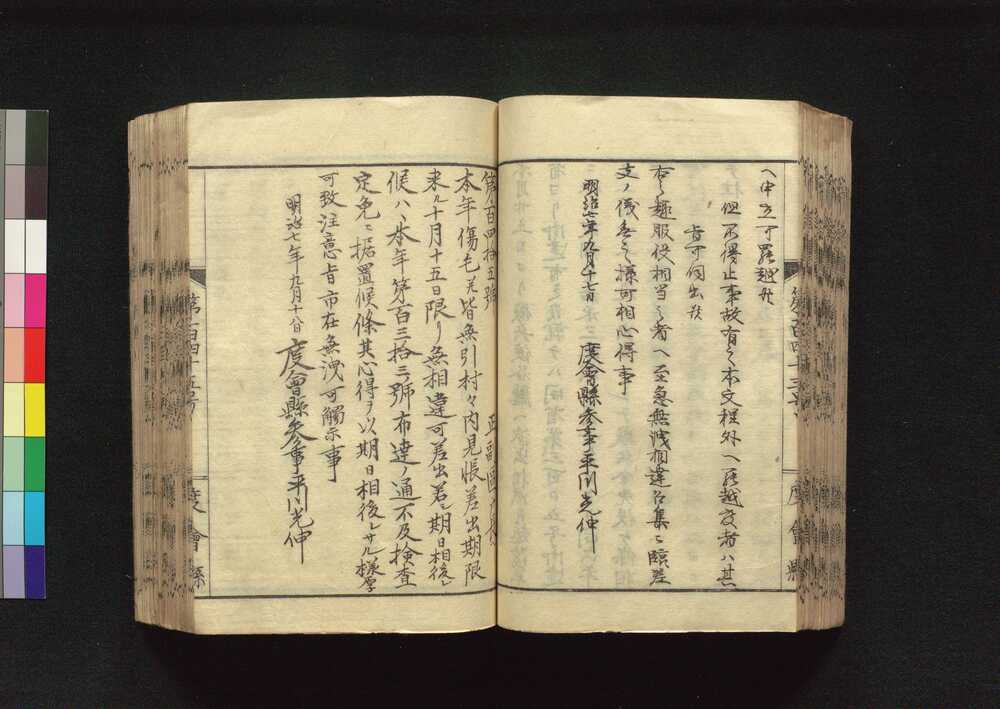 ヘ申立可罷越於
但不得止事故有之本文程外ヘ罷越度者ハ其
旨可伺出於
右之趣服役相当之者ヘ至急無洩相達召集ニ臨差
支ノ儀無之様可相心得事
明治七年九月十七日
度會縣參事平川光伸
第百四拾五號
正副區戸長
本年傷毛并皆無引村々内見帳差出期限
来ル十月十五日限リ無相違可差出若シ期日相後レ
候ハヽ本年第百三拾三號布達ノ通不及検査
定免ニ据置候條其心得ヲ以期日相後レサル様厚
可致注意旨市在無洩可觸示事
明治七年九月十八日
度會縣參事平川光伸
第百四十五号
度會縣